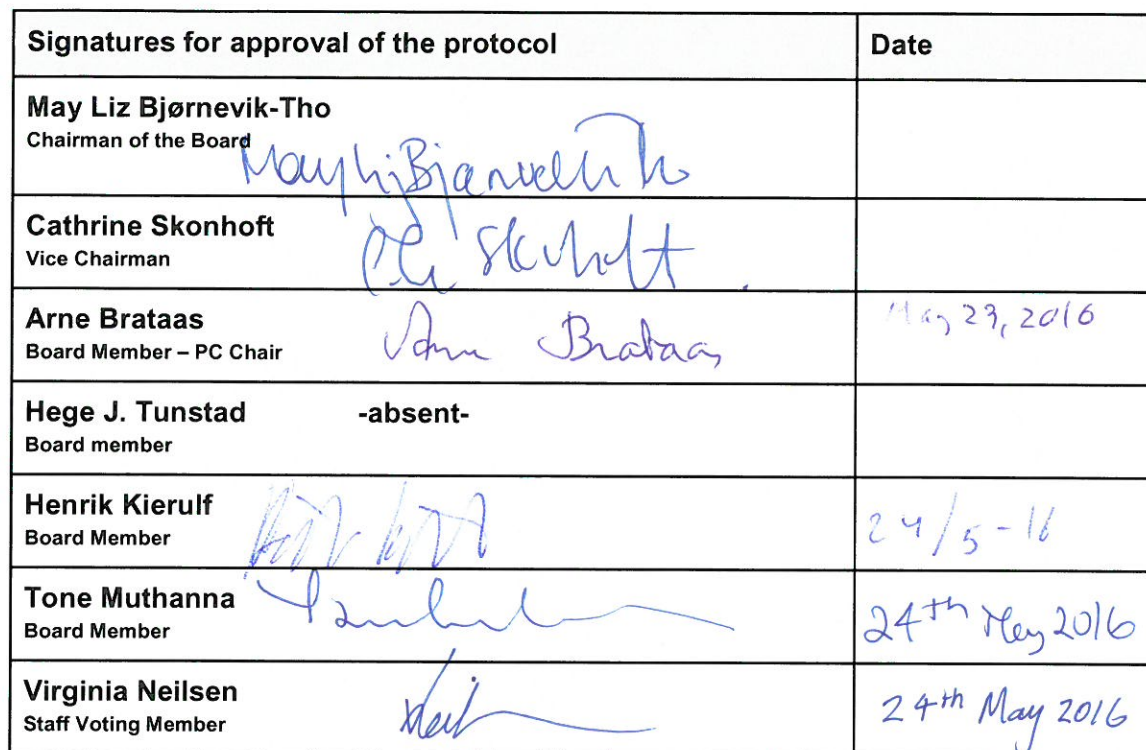 Signatures for approval of the protocol Date
May Liz Bjørnevik-Tho
Chairman of the Board
Cathrine Skonhoft
Vice Chairman
Skonhoft
Arne Brataas
Board Member – PC Chair
Arne Brataas
May 23, 2016
Hege J. Tunstad -absent-
Board member
Henrik Kierulf
Board Member
24/5-16
Tone Muthanna
Board Member
24th May 2016
Virginia Neilsen
Staff Voting Member
24th May 2016